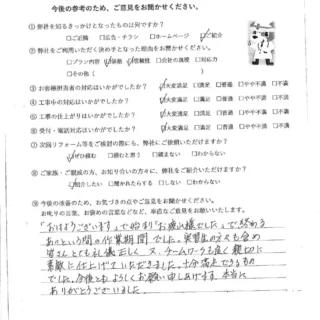 今後の参考のため、ご意見をお聞かせください。
①弊社を知るきっかけとなったものは何ですか?
□ご近隣 □広告・チラシ □ホームページ ☑ご紹介
②弊社をご利用いただく決め手となった理由をお聞かせください。
□プラン内容 ☑価格 ☑営業担当 □会社の規模 □対応力
□その他(
③お客様担当者の対応はいかがでしたか? ☑大変満足 □満足 □普通 □やや不満 □不満
④工事中の対応はいかがでしたか? ☑大変満足 □満足 □普通 □やや不満 □不満
⑤工事の仕上がりはいかがでしたか? ☑大変満足 □満足 □普通 □やや不満 □不満
⑥受付・電話対応はいかがでしたか? ☑大変満足 □満足 □普通 □やや不満 □不満
⑦次回リフォーム等をご検討の際にも、弊社にご依頼いただけますか?
☑ぜひ頼む □頼むと思う □頼まない □わからない
⑧ご家族・ご親戚の方、お知り合いの方々に、弊社をご紹介いただけますか?
☑紹介したい □聞かれたらする □しない □わからない
⑨今後の改善のため、お気づきの点やご意見をお聞かせください。
お叱りの言葉、お褒めの言葉などなど、率直なご意見をお願いいたします。
「おはようございます」で始まり「お疲れ様でした」で終わる
あっという間の作業期間でした。実習生の方々も含め
皆さんとても礼儀正しく 又、チームワークも良く親切に
素敵に仕上げていただきました。十分満足できるもの
でした。今後ともよろしくお願い申し上げます。本当に
ありがとうございました